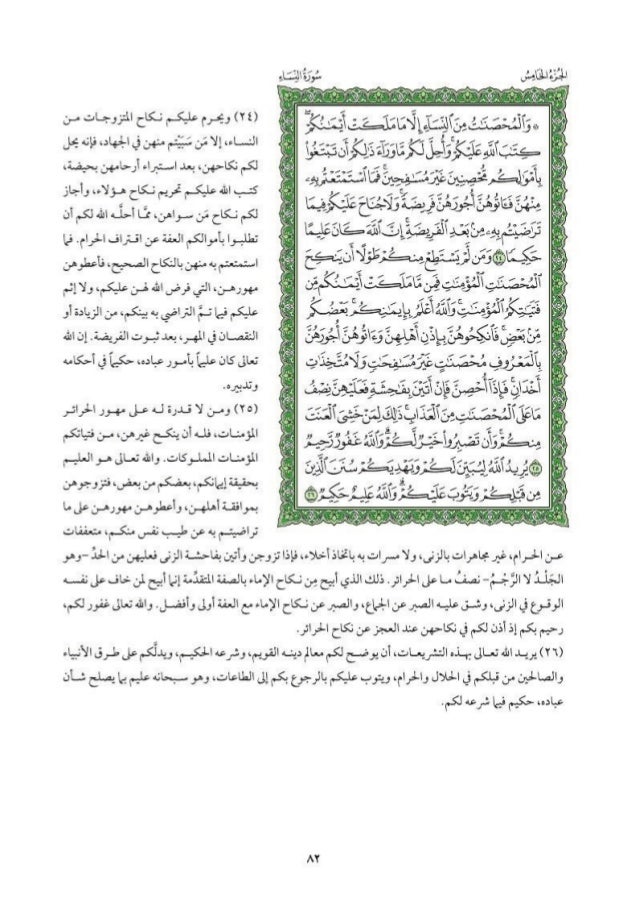 الجزء الخامس
سورة النساء
۞ وَٱلْمُحْصَنَٰتُ مِنَ ٱلنِّسَآءِ إِلَّا مَا مَلَكَتْ أَيْمَٰنُكُمْۖ
كِتَٰبَ ٱللَّهِ عَلَيْكُمْۚ وَأُحِلَّ لَكُم مَّا وَرَآءَ ذَٰلِكُمْ أَن تَبْتَغُوا۟
بِأَمْوَٰلِكُم مُّحْصِنِينَ غَيْرَ مُسَٰفِحِينَۚ فَمَا ٱسْتَمْتَعْتُم بِهِۦ
مِنْهُنَّ فَـَٔاتُوهُنَّ أُجُورَهُنَّ فَرِيضَةًۚ وَلَا جُنَاحَ عَلَيْكُمْ فِيمَا
تَرَٰضَيْتُم بِهِۦ مِنۢ بَعْدِ ٱلْفَرِيضَةِۚ إِنَّ ٱللَّهَ كَانَ عَلِيمًا
حَكِيمًا ٢٤ وَمَن لَّمْ يَسْتَطِعْ مِنكُمْ طَوْلًا أَن يَنكِحَ
ٱلْمُحْصَنَٰتِ ٱلْمُؤْمِنَٰتِ فَمِن مَّا مَلَكَتْ أَيْمَٰنُكُم مِّن
فَتَيَٰتِكُمُ ٱلْمُؤْمِنَٰتِۚ وَٱللَّهُ أَعْلَمُ بِإِيمَٰنِكُمۚ بَعْضُكُم
مِّنۢ بَعْضٍۚ فَٱنكِحُوهُنَّ بِإِذْنِ أَهْلِهِنَّ وَءَاتُوهُنَّ أُجُورَهُنَّ
بِٱلْمَعْرُوفِ مُحْصَنَٰتٍ غَيْرَ مُسَٰفِحَٰتٍ وَلَا مُتَّخِذَٰتِ
أَخْدَانٍۚ فَإِذَآ أُحْصِنَّ فَإِنْ أَتَيْنَ بِفَٰحِشَةٍ فَعَلَيْهِنَّ نِصْفُ
مَا عَلَى ٱلْمُحْصَنَٰتِ مِنَ ٱلْعَذَابِۚ ذَٰلِكَ لِمَنْ خَشِىَ ٱلْعَنَتَ
مِنكُمْۚ وَأَن تَصْبِرُوا۟ خَيْرٌ لَّكُمْۗ وَٱللَّهُ غَفُورٌ رَّحِيمٌ
٢٥ يُرِيدُ ٱللَّهُ لِيُبَيِّنَ لَكُمْ وَيَهْدِيَكُمْ سُنَنَ ٱلَّذِينَ
مِن قَبْلِكُمْ وَيَتُوبَ عَلَيْكُمْۗ وَٱللَّهُ عَلِيمٌ حَكِيمٌ ٢٦
(٢٤) ويحرم عليكم نكاح المتزوجات من
النساء، إلا مَن سَبَيْتم منهن في الجهاد، فإنه يحل
لكم نكاحهن، بعد استبراء أرحامهن بحيضة،
كتب الله عليكم تحريم نكاح هؤلاء، وأجاز
لكم نكاح مَن سواهن، ممَّا أحلَّه الله لكم أن
تطلبوا بأموالكم العفة عن اقتراف الحرام. فما
استمتعتم به منهن بالنكاح الصحيح، فأعطوهن
مهورهن، التي فرض الله لهن عليكم، ولا إثم
عليكم فيما تمَّ التراضي به بينكم، من الزيادة أو
النقصان في المهر، بعد ثبوت الفريضة. إن الله
تعالى كان عليماً بأمور عباده، حكيماً في أحكامه
وتدبيره.
(٢٥) ومن لا قدرة له على مهور الحرائر
المؤمنات، فله أن ينكح غيرهن، من فتياتكم
المؤمنات المملوكات. والله تعالى هو العليم
بحقيقة إيمانكم، بعضكم من بعض، فتزوجوهن
بموافقة أهلهن، وأعطوهن مهورهن على ما
تراضيتم به عن طيب نفس منكم، متعففات
عن الحرام، غير مجاهرات بالزنى، ولا مسرات به باتخاذ أخلاء، فإذا تزوجن وأتين بفاحشة الزنى فعليهن من الحدِّ -وهو
الجَلْدُ لا الرَّجْمُ- نصفُ ما على الحرائر. ذلك الذي أبيح مِن نكاح الإماء بالصفة المتقدِّمة إنما أبيح لمن خاف على نفسه
الوقوع في الزنى، وشق عليه الصبر عن الجماع، والصبر عن نكاح الإماء مع العفة أولى وأفضل. والله تعالى غفور لكم،
رحيم بكم إذ أذن لكم في نكاحهن عند العجز عن نكاح الحرائر.
(٢٦) يريد الله تعالى بهذه التشريعات، أن يوضح لكم معالم دينه القويم، وشرعه الحكيم، ويدلَّكم على طرق الأنبياء
والصالحين من قبلكم في الحلال والحرام، ويتوب عليكم بالرجوع بكم إلى الطاعات، وهو سبحانه عليم بما يصلح شأن
عباده، حكيم فيما شرعه لكم.
٨٢